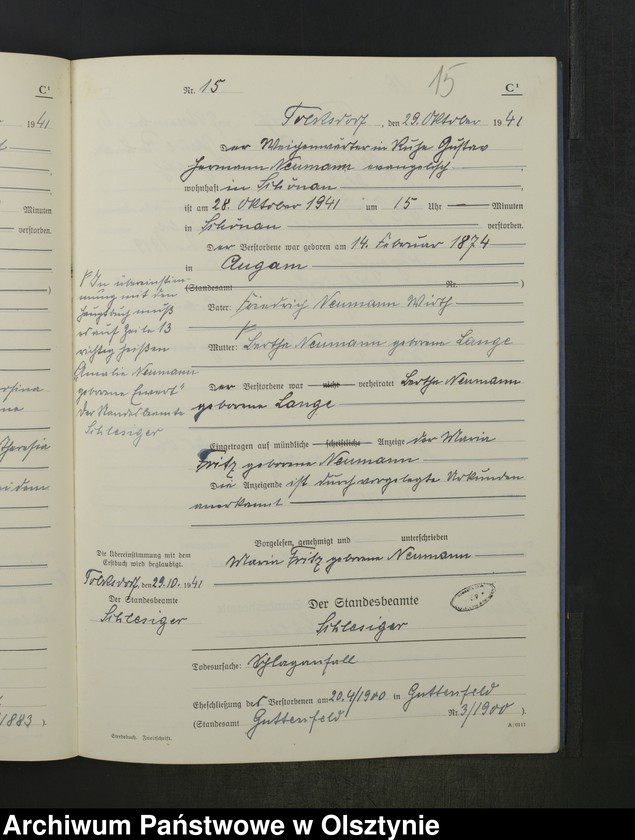 41
C¹
19 41
Minuten
verstorben.
Theresia
1883 ).
Nr. 15
15
C¹
Tolksdorf, den 29. Oktober 19 41
Der Weichenwärter in Ruhe Gustav
Hermann Neumann evangelisch
wohnhaft in Schönau
ist am 28. Oktober 1941 um 15 Uhr Minuten
in Schönau verstorben.
Der Verstorbene war geboren am 14. Februar 1874
in Augam
(Standesamt Nr. )
Vater: Friedrich Neumann Wirth
Mutter: Bertha Neumann geborene Lange
Der Verstorbene war nicht verheiratet Bertha Neumann
geborene Lange
Eingetragen auf mündliche schriftliche Anzeige der Maria
Fritz geborene Neumann
Die Anzeigende ist durch vorgelegte Urkunden
anerkannt
Vorgelesen, genehmigt und unterschrieben
Maria Fritz geborene Neumann
Der Standesbeamte
Schlesiger
Todesursache: Schlaganfall
Eheschließung des Verstorbenen am 20.4/1900 in Guttenfeld
(Standesamt Guttenfeld Nr. 3/1900 ).
In übereinstim-
mung mit dem
Hauptbuch muß
es auf Zeile 13
richtig heißen
Amalie Neumann
geborene Ewert"
Der Standesbeamte
Schlesiger
Die Übereinstimmung mit dem
Erstbuch wird beglaubigt.
Tolksdorf, den 29.10. 19 41
Der Standesbeamte
Schlesiger
Sterbebuch. Zweitschrift.
Archiwum Państwowe w Olsztynie